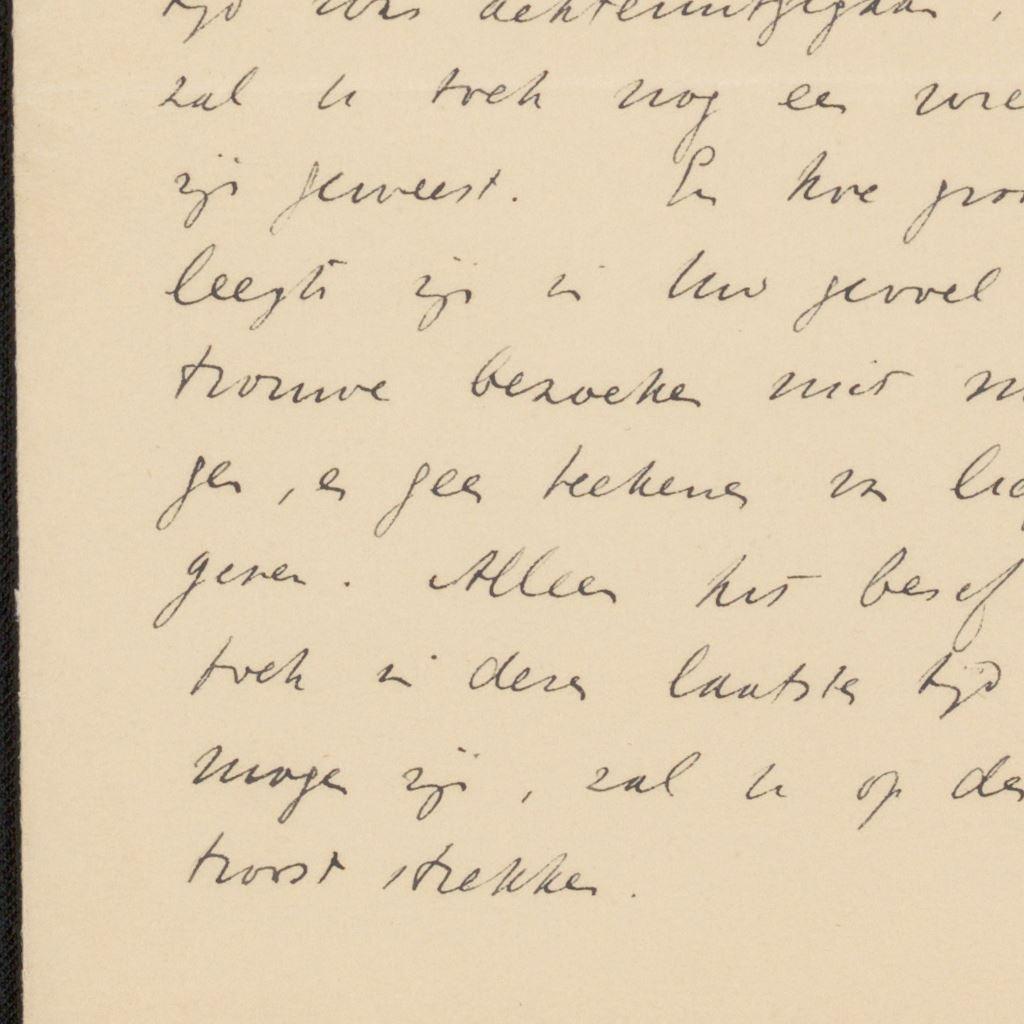 tijd was achteruitgegaan,
zal U toch nog een
zijn geweest. En hoe
leegte zijn in Uw gevoel
trouwe bezoeken niet
gen, en geen teekenen van
geven. Alleen het besef
toch in dezen laatsten tijd
mogen zijn, zal U op den
troost strekken.